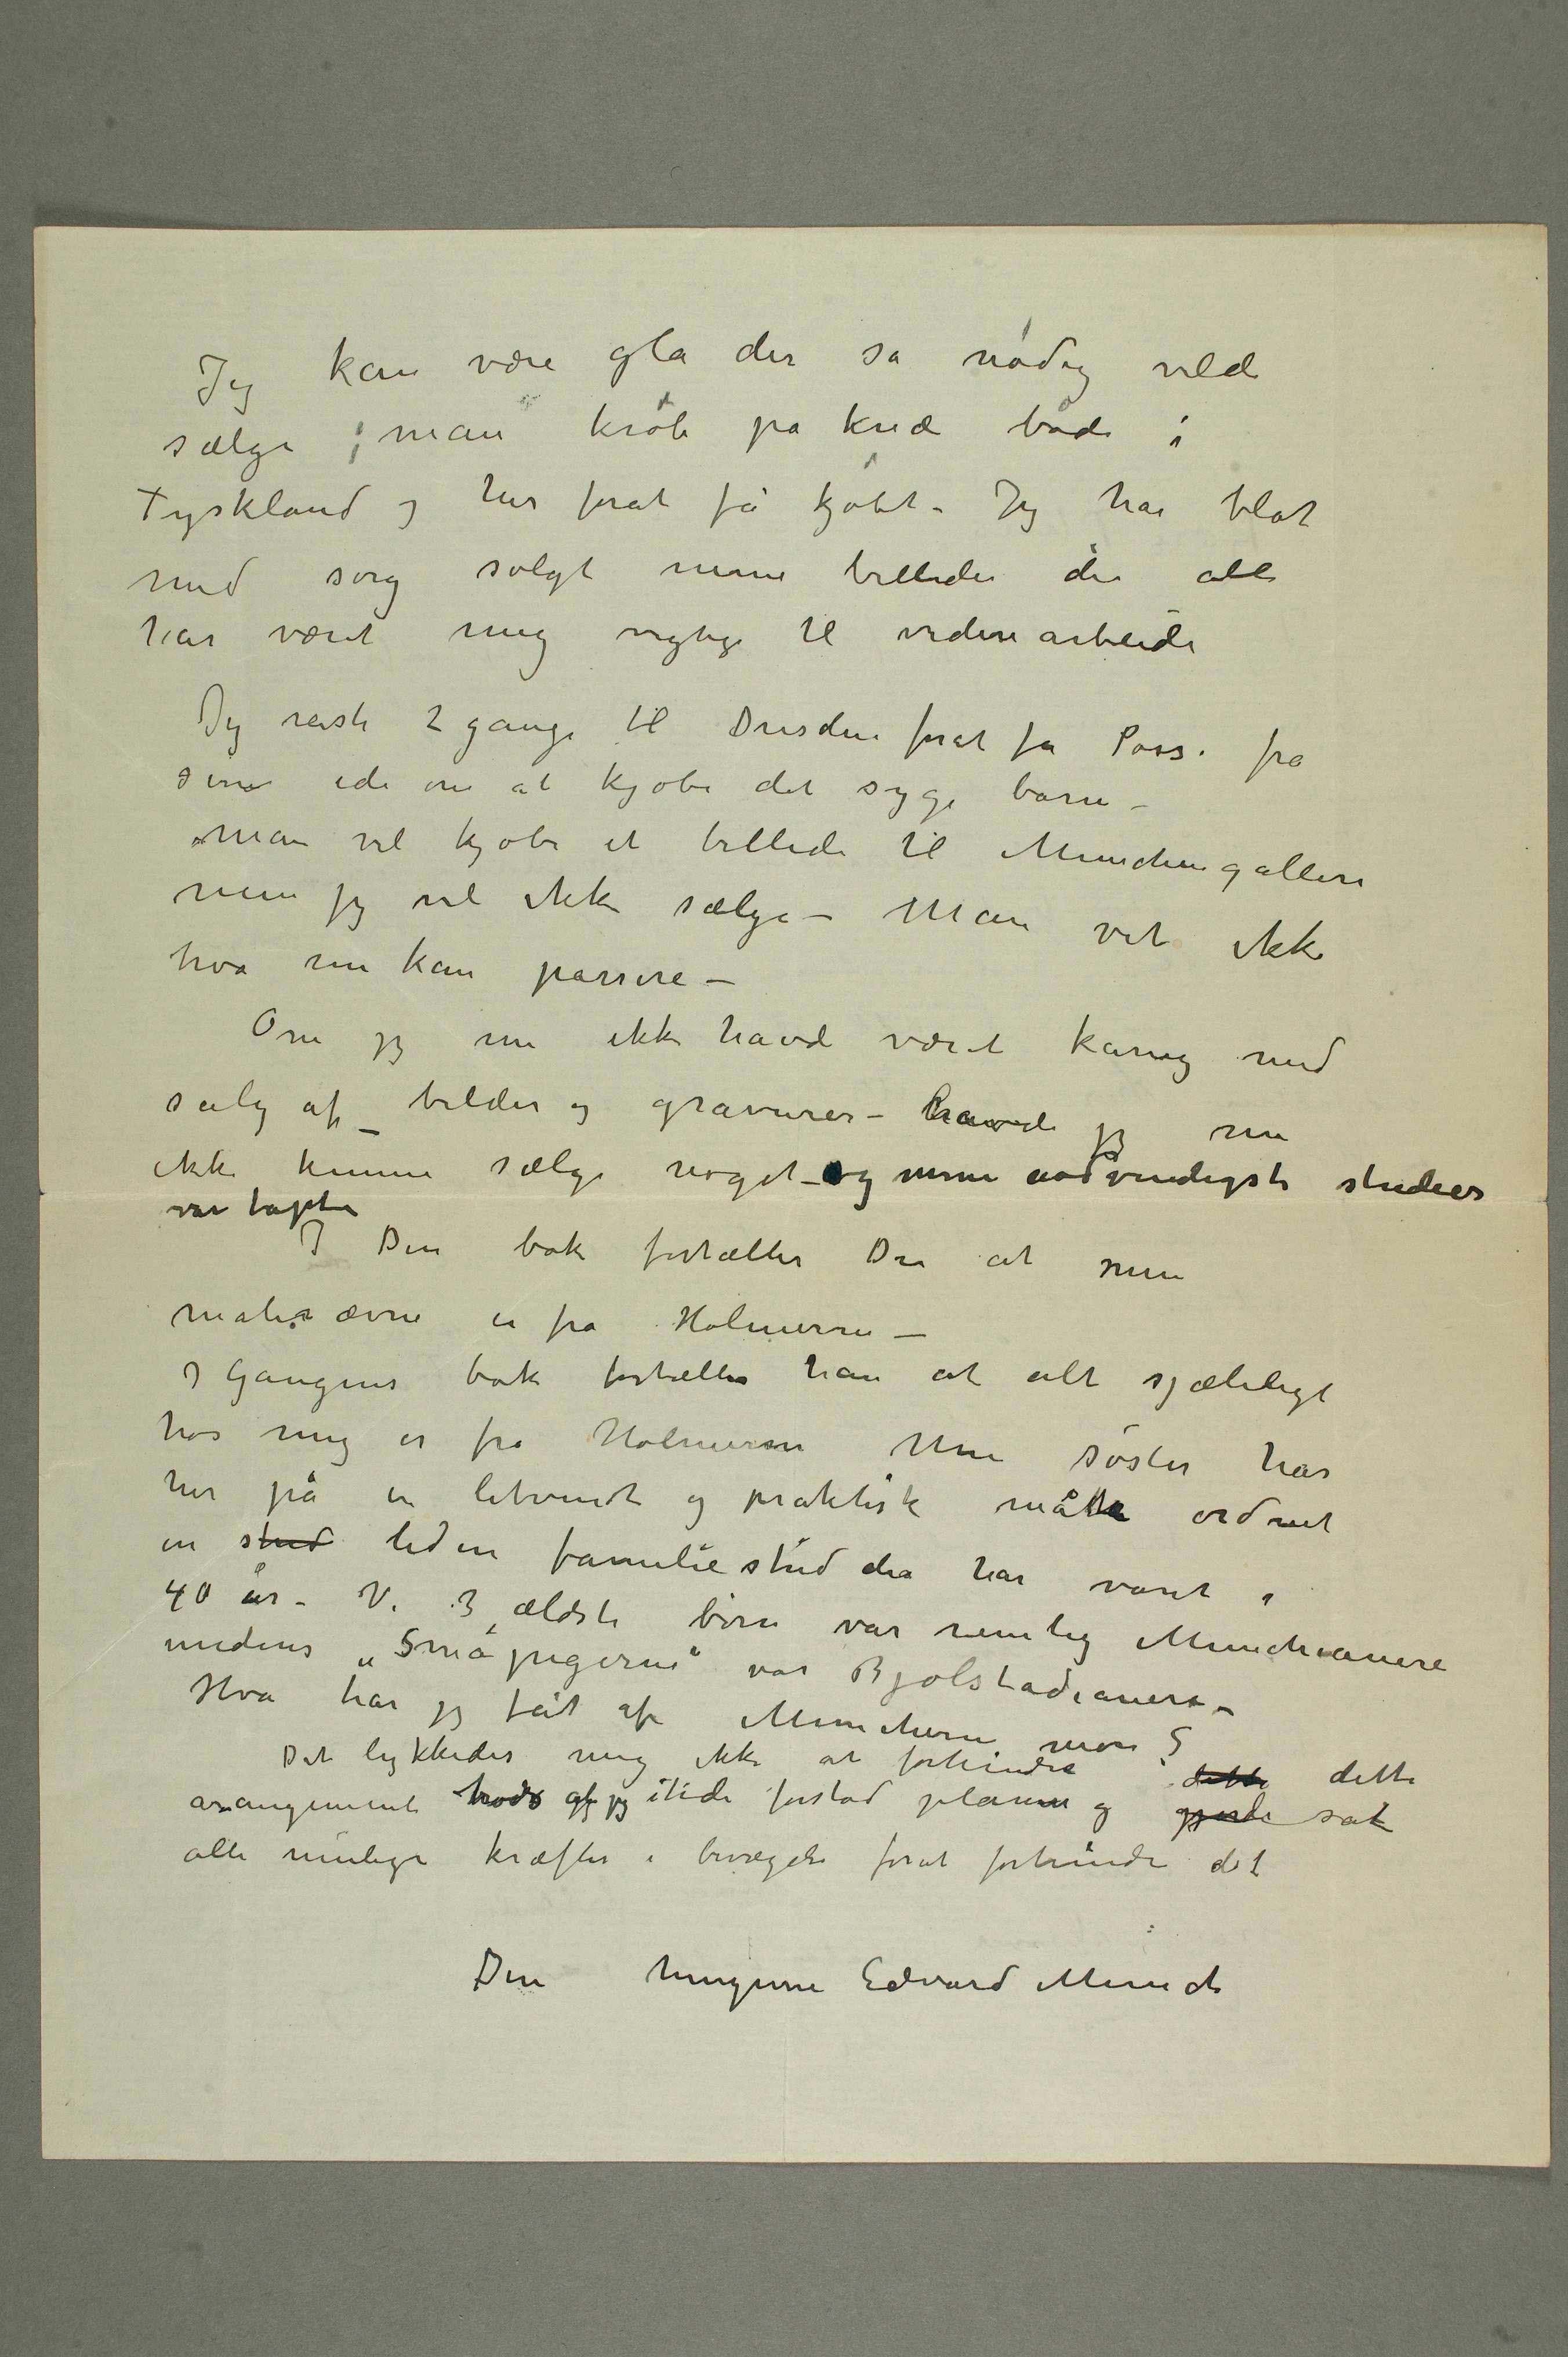 Jeg kan være gla der så nødig vilde
sælge; man krøb på knæ både i
Tyskland og her forat få kjøbt – Jeg har blot
med sorg solgt mine billeder der alle
har været mig vigtige til videre arbeide
Jeg reiste 2 gange til Dresden forat få Poss. fra
sin ide om at kjøbe det syge barn –
Man vil kjøbe et billede til Münchengalleri
men jeg vil ikke sælge – Man vet ikke
hva nu kan passere –
Om jeg nu ikke havde været karrig med
salg af billeder og gravurer – havde jeg nu
ikke kunne sælge noget – og mine nødvendigste studier
var tapte
I Din bok fortæller Du at min
malerævne er fra Holmerne –
I Gaugins bok fortæller han at alt sjæleligt
hos mig er fra Holmerne Min søster har
her på en letvindt og praktisk måtte ordnet
en strid liden familiestrid der har varet i
40 år – Vi 3 ældste børn var nemlig Munchianere
medens „Småpigerne“ var Bjølstadianere –
Hva har jeg fåt af Muncherne mon?
Det lykkedes mig ikke at forhindre dette dette
arangement trods at jeg itide forstod planen og gjorde sat
alle mulige kræfter i bevægelse forat forhindre det
Din hengivne Edvard Munch